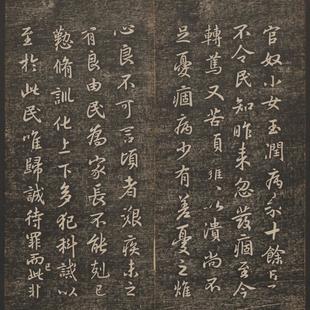 官奴小女玉潤病來十餘日了
不令民知昨來忽發痼至今
轉篤又苦頭癰〻以潰尚不
足憂痼病少有差憂之燋
心良不可言頃者艱疾未之
有良由民為家長不能剋己
懃脩訓化上下多犯科誡以
至於此民唯歸誠待罪而已此非